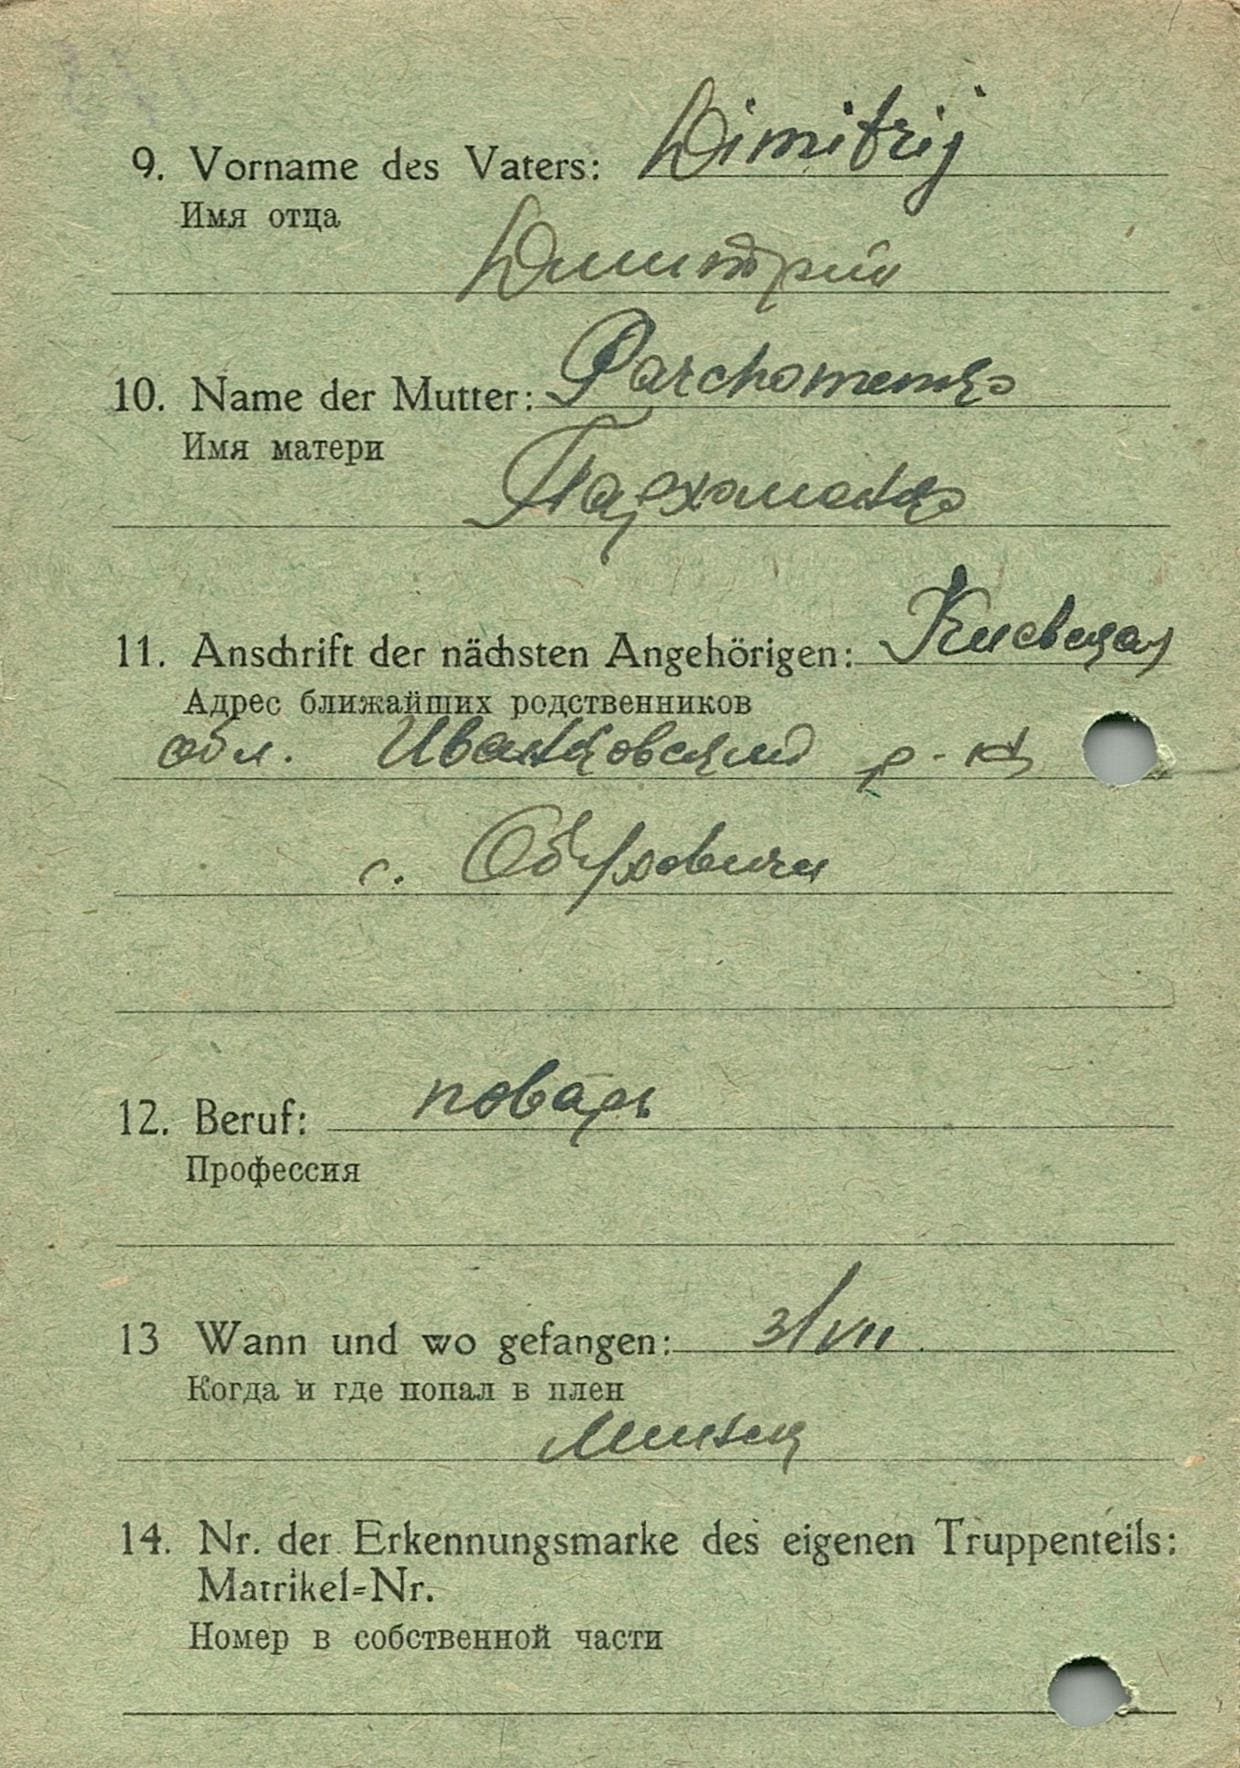 9. Vorname des Vaters: Dimitrij
Имя отца
Димитрий
10. Name der Mutter: Parchomenko
Имя матери
Пархоменко
11. Anschrift der nächsten Angehörigen: Киевская
Адрес ближайших родственников
обл. Иванковский р-н
с. Обуховичи
12. Beruf: поваръ
Профессия
13 Wann und wo gefangen: 3/VII
Когда и где попал в плен
Минск
14. Nr. der Erkennungsmarke des eigenen Truppenteils:
Matrikel=Nr.
Номер в собственной части